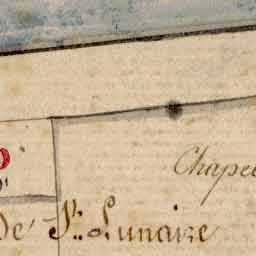 Chapel
de St. Lunaire